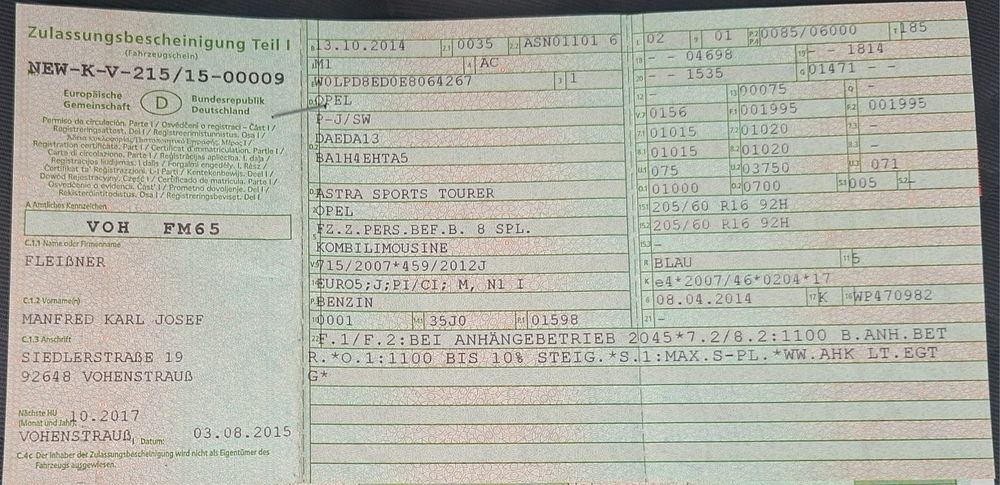 Zulassungsbescheinigung Teil I
(Fahrzeugschein)
NEW-K-V-215/15-00009
Europäische Gemeinschaft
D
Bundesrepublik Deutschland
Permiso de circulación. Parte I / Osvědčení o registraci – Část I /
Registreringsattest. Del I / Registreerimistunnistus. Osa I /
Registration certificate. Part I / Certificat d'immatriculation. Partie I /
Carta di circolazione. Parte I / Reģistrācijas apliecība. I. daļa /
Registracijos liudijimas. I dalis / Forgalmi engedély. I. Rész /
Ċertifikat ta' Reġistrazzjoni. L-I Parti / Kentekenbewijs. Deel I /
Dowód Rejestracyjny. Część I / Certificado de matrícula. Parte I /
Osvedčenie o evidencii. Časť I / Prometno dovoljenje. Del I /
Rekisteröintitodistus. Osa I / Registreringsbeviset. Del I.
A Amtliches Kennzeichen
VOH FM65
C.1.1 Name oder Firmenname
FLEIßNER
C.1.2 Vorname(n)
MANFRED KARL JOSEF
C.1.3 Anschrift
SIEDLERSTRAßE 19
92648 VOHENSTRAUß
Nächste HU
(Monat und Jahr): 10.2017
VOHENSTRAUß, Datum: 03.08.2015
C.4c Der Inhaber der Zulassungsbescheinigung wird nicht als Eigentümer des
Fahrzeugs ausgewiesen.
B 13.10.2014 2.1 0035 2.2 ASN01101 6
J M1 4 AC
E W0LPD8ED0E8064267 3 1
D.1 OPEL
P-J/SW
D.2 DAEDA13
BA1H4EHTA5
D.3 ASTRA SPORTS TOURER
2 OPEL
5 FZ.Z.PERS.BEF.B. 8 SPL.
KOMBILIMOUSINE
V.9 715/2007*459/2012J
14 EURO5;J;PI/CI; M, N1 I
P.3 BENZIN
10 0001 14.1 35J0 P.1 01598
L 02 9 01 P.2 P.4 0085/06000 T 185
18 – – 04698 19 – – 1814
20 – – 1535 G 01471 – –
12 – 13 00075 Q –
V.7 0156 F.1 001995 F.2 001995
7.1 01015 7.2 01020 7.3 –
8.1 01015 8.2 01020 8.3 –
U.1 075 U.2 03750 U.3 071
O.1 01000 O.2 0700 S.1 005 S.2 –
15.1 205/60 R16 92H
15.2 205/60 R16 92H
15.3 –
R BLAU 11 5
K e4*2007/46*0204*17
6 08.04.2014 17 K 16 WP470982
21 –
22 F.1/F.2:BEI ANHÄNGEBETRIEB 2045*7.2/8.2:1100 B.ANH.BET
R.*O.1:1100 BIS 10% STEIG.*S.1:MAX.S-PL.*WW.AHK LT.EGT
G*